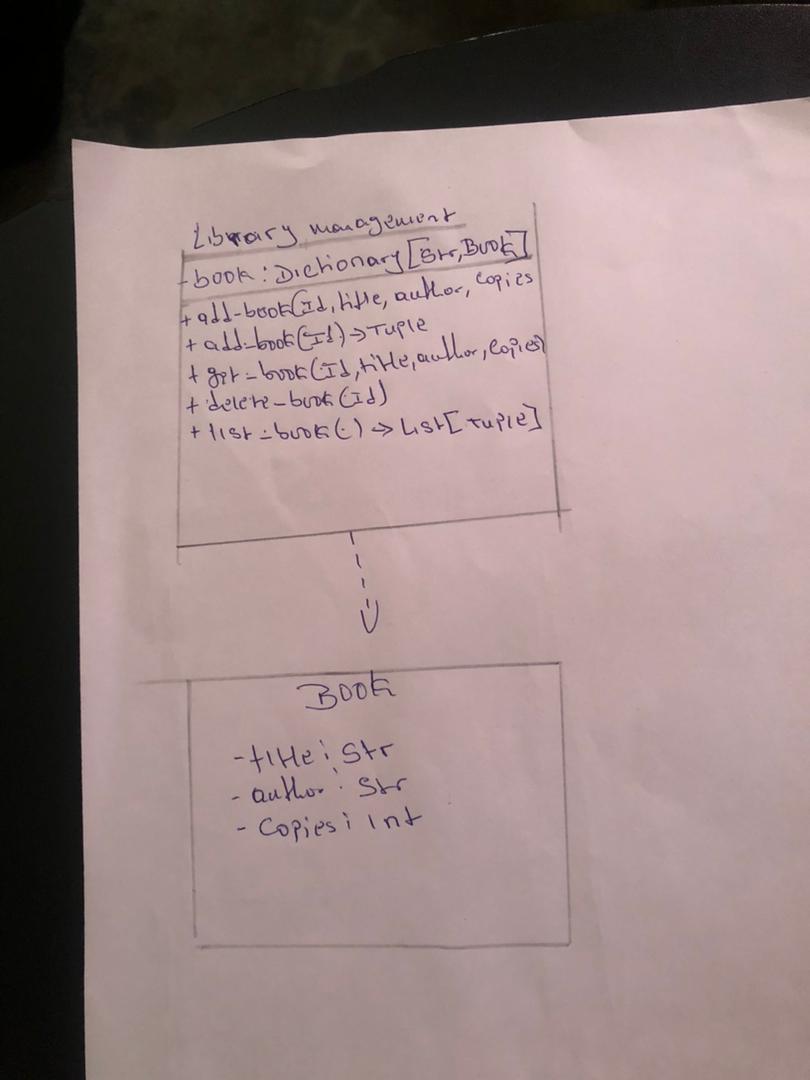 Library management
- book : Dictionary [Str, Book]
+ add-book(Id, title, author, Copies
+ add-book(Id) → Tuple
+ get-book(Id, title, author, Copies)
+ delete-book(Id)
+ list-book(.) → List[Tuple]
BOOK
- title : Str
- author : Str
- Copies : Int